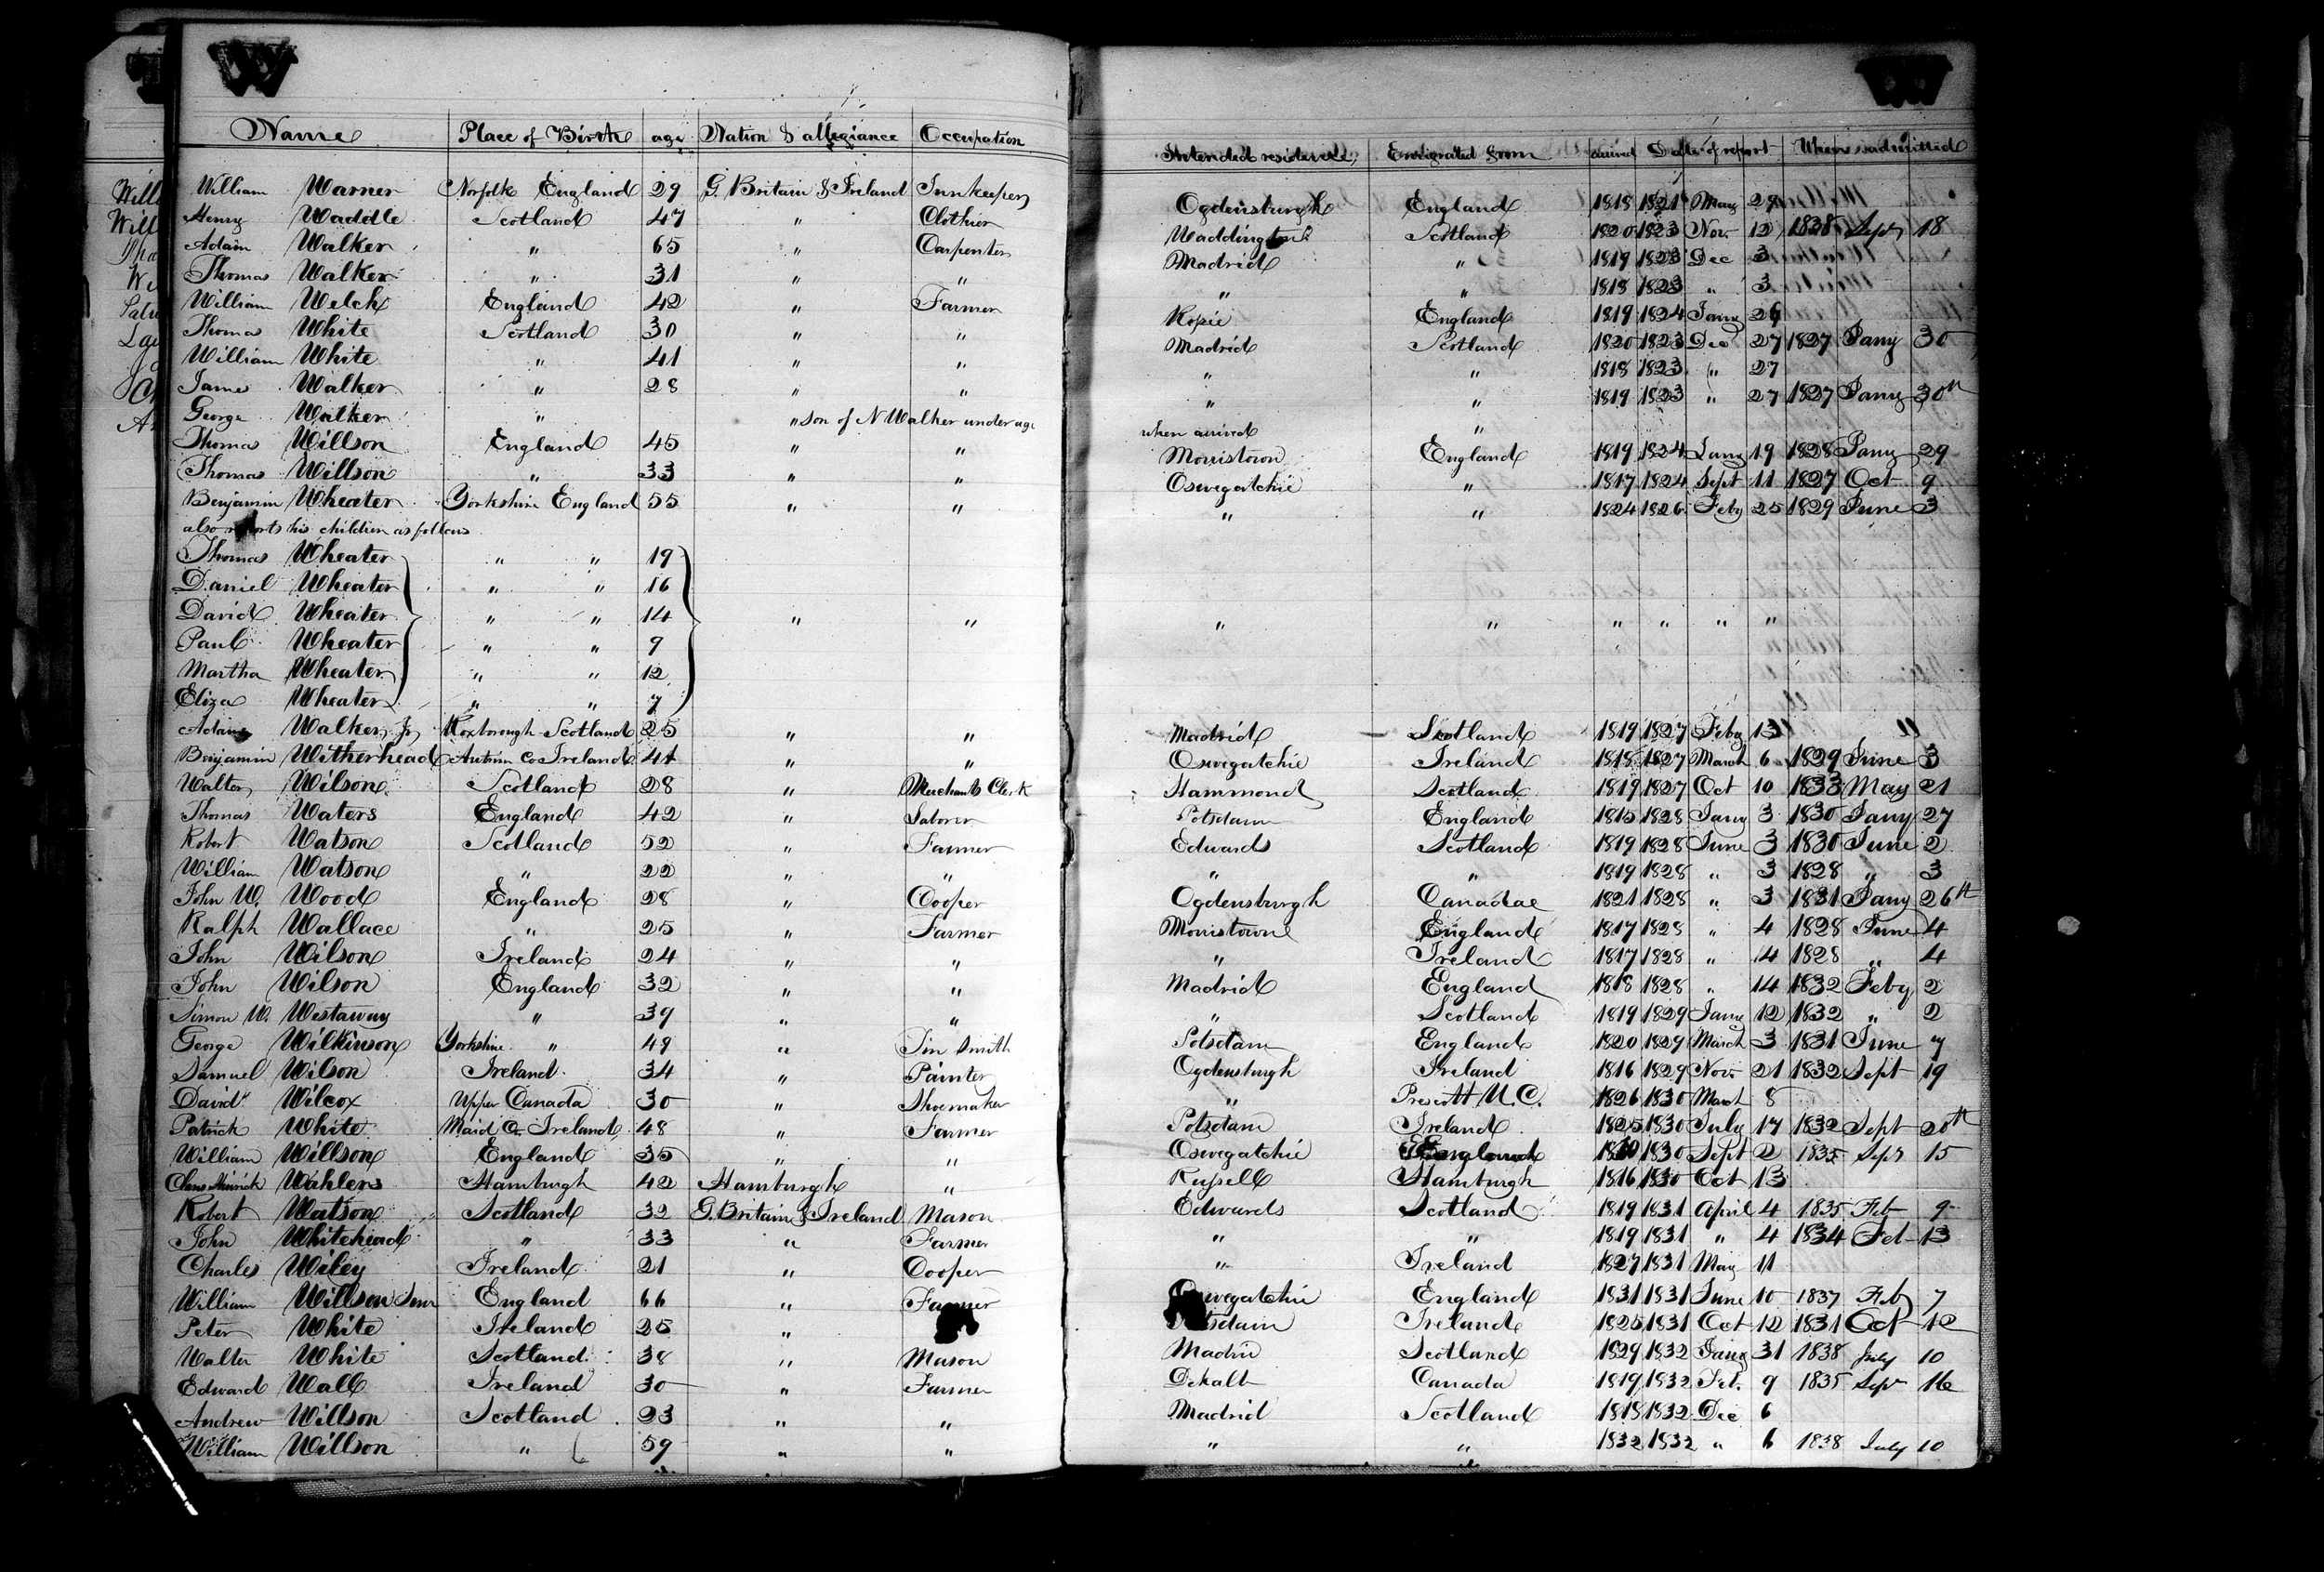 W
W
Name Place of Birth age Nation & allegiance Occupation Intended residence Emigrated from arrived Date of report When admitted
William Warner Norfolk England 29 G. Britain & Ireland Innkeeper Ogdensburgh England 1818 1821 May 29
Henry Waddle Scotland 47 " Clothier Waddington Scotland 1820 1823 Nov. 12 1838 Sept 18
Adam Walker " 65 " Carpenter Madrid " 1819 1823 Dec 3
Thomas Walker " 31 " " " " 1818 1823 " 3
William Welch England 42 " Farmer Rossie England 1819 1824 Jany 26
Thomas White Scotland 30 " " Madrid Scotland 1820 1823 Dec 27 1827 Jany 30
William White " 41 " " " " 1818 1823 " 27
James Walker " 28 " " " " 1819 1823 " 27 1827 Jany 30th
George Walker " " son of N Walker under age when arrived "
Thomas Willson England 45 " " Morristown England 1819 1824 Jany 19 1828 Jany 29
Thomas Willson " 33 " " Oswegatchie " 1817 1824 Sept 11 1827 Oct 9
Benjamin Wheater Yorkshire England 55 " " " " 1824 1826 Feby 25 1829 June 3
also reports his children as follows
Thomas Wheater " " 19
Daniel Wheater " " 16
David Wheater " " 14 " " " " " " " "
Paul Wheater " " 9
Martha Wheater " " 12
Eliza Wheater " " 7
Adam Walker Jr Roxborough Scotland 25 " " Madrid Scotland 1819 1827 Feby 13 "
Benjamin Witherhead Antrim Co Ireland 41 " " Oswegatchie Ireland 1818 1827 March 6 1829 June 3
Walter Wilson Scotland 28 " Merchants Clerk Hammond Scotland 1819 1827 Oct 10 1833 May 21
Thomas Waters England 42 " Laborer Potsdam England 1815 1828 Jany 3 1830 Jany 27
Robert Watson Scotland 52 " Farmer Edwards Scotland 1819 1828 June 3 1830 June 2
William Watson " 22 " " " " 1819 1828 " 3 1828 " 3
John W. Wood England 28 " Cooper Ogdensburgh Canadae 1821 1828 " 3 1831 Jany 26th
Ralph Wallace " 25 " Farmer Morristown England 1817 1828 " 4 1828 June 4
John Wilson Ireland 24 " " " Ireland 1817 1828 " 4 1828 " 4
John Wilson England 32 " " Madrid England 1818 1828 " 14 1832 Feby 2
Simon W. Westaway " 39 " " " Scotland 1819 1829 Jany 12 1832 " 2
George Wilkinson Yorkshire " 49 " Tin Smith Potsdam England 1820 1829 March 3 1831 June 7
Samuel Wilson Ireland 34 " Painter Ogdensburgh Ireland 1816 1829 Nov. 21 1832 Sept 19
David Wilcox Upper Canada 30 " Shoemaker " Prescott U.C. 1826 1830 March 8
Patrick White Maid Co. Ireland 48 " Farmer Potsdam Ireland 1825 1830 July 17 1832 Sept 20th
William Willson England 35 " " Oswegatchie England 1830 Sept 2 1835 Sept 15
Hinrick Wahlers Hamburgh 42 Hamburgh " Russell Hamburgh 1816 1830 Oct 13
Robert Watson Scotland 32 G. Britain & Ireland Mason Edwards Scotland 1819 1831 April 4 1835 Feb 9
John Whitehead " 33 " Farmer " " 1819 1831 " 4 1834 Feb 13
Charles Wiley Ireland 21 " Cooper " Ireland 1827 1831 May 11
William Willson Senr England 66 " Farmer Oswegatchie England 1831 1831 June 10 1837 Feb 7
Peter White Ireland 25 " Potsdam Ireland 1825 1831 Oct 12 1831 Oct 12
Walter White Scotland 38 " Mason Madrid Scotland 1829 1832 Jany 31 1838 July 10
Edward Wall Ireland 30 " Farmer Dekalb Canada 1819 1832 Feb. 9 1835 Sept 16
Andrew Willson Scotland 23 " " Madrid Scotland 1818 1832 Dec 6
William Willson " 59 " " " " 1832 1832 " 6 1838 July 10